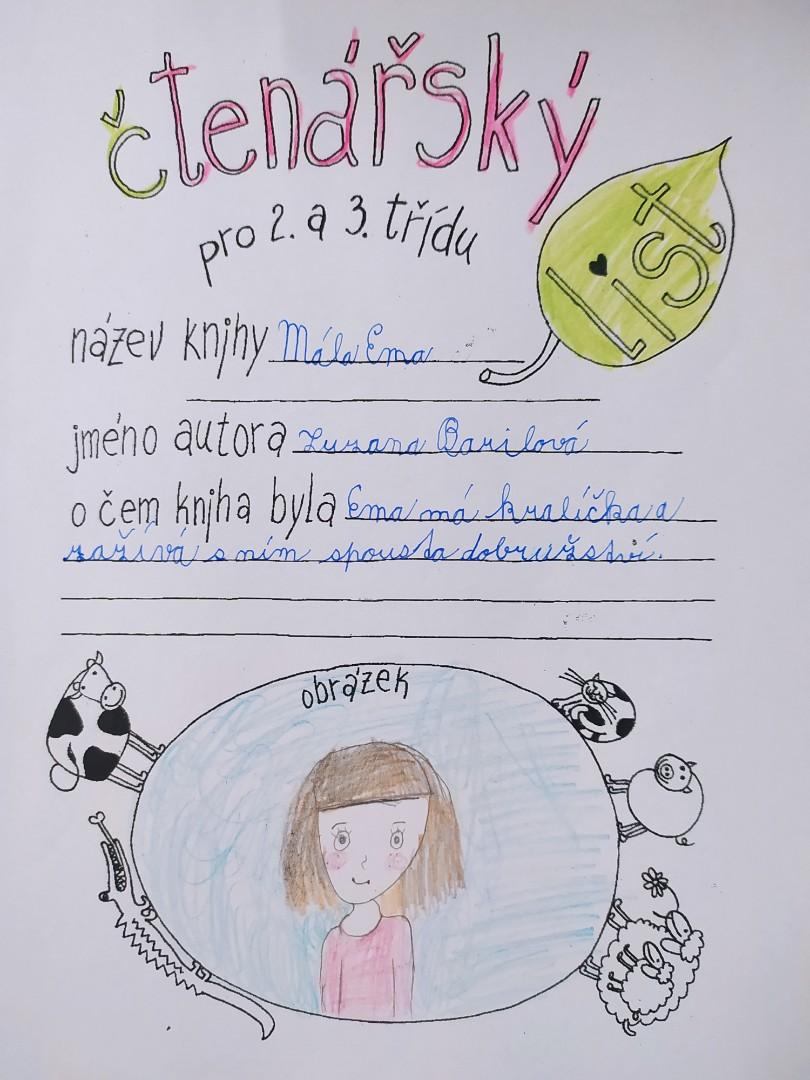 čtenářský
list
pro 2. a 3. třídu
název knihy Mála Ema
jméno autora Zuzana Barilová
o čem kniha byla Ema má kralíčka a
zažívá s ním spousta dobružství.
obrázek